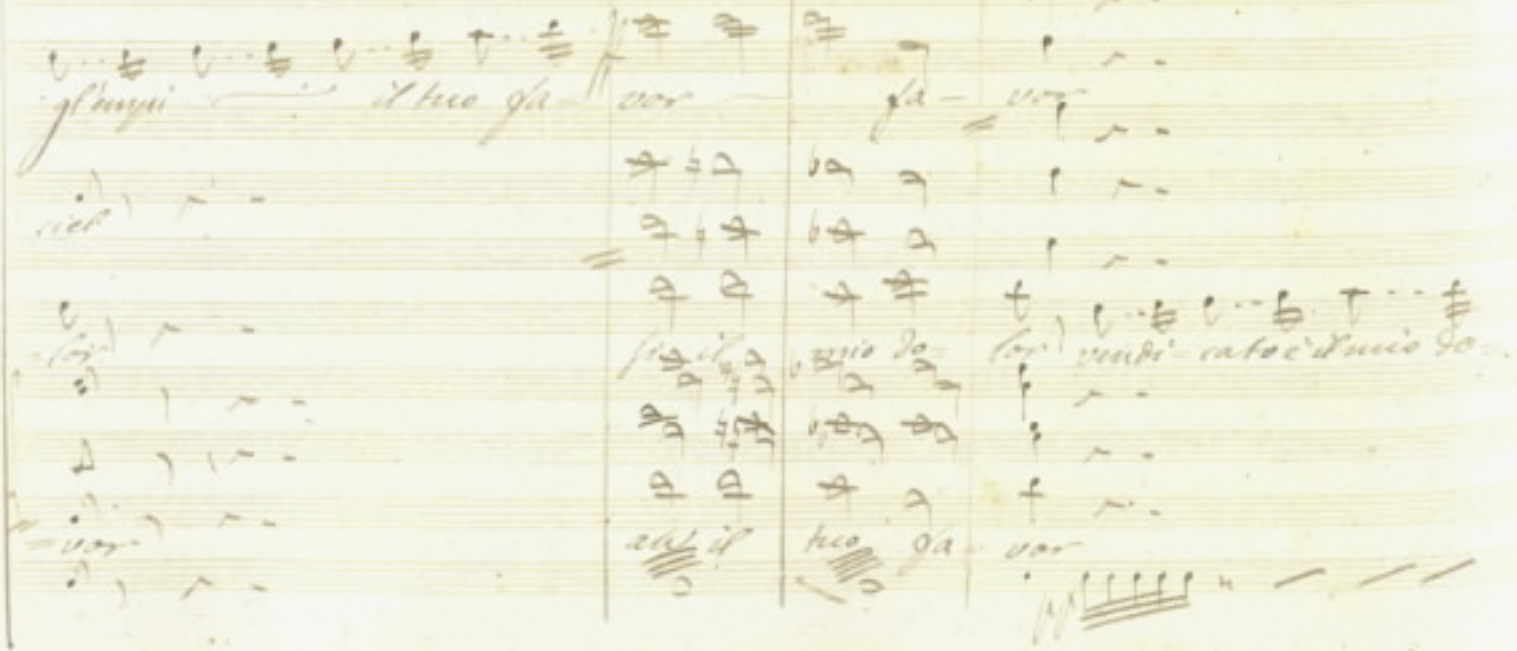 gl'empi il tuo fa- vor fa- vor
ciel
=lor il mio do- lor vendi- cato è il mio do=
=vor il tuo fa- vor